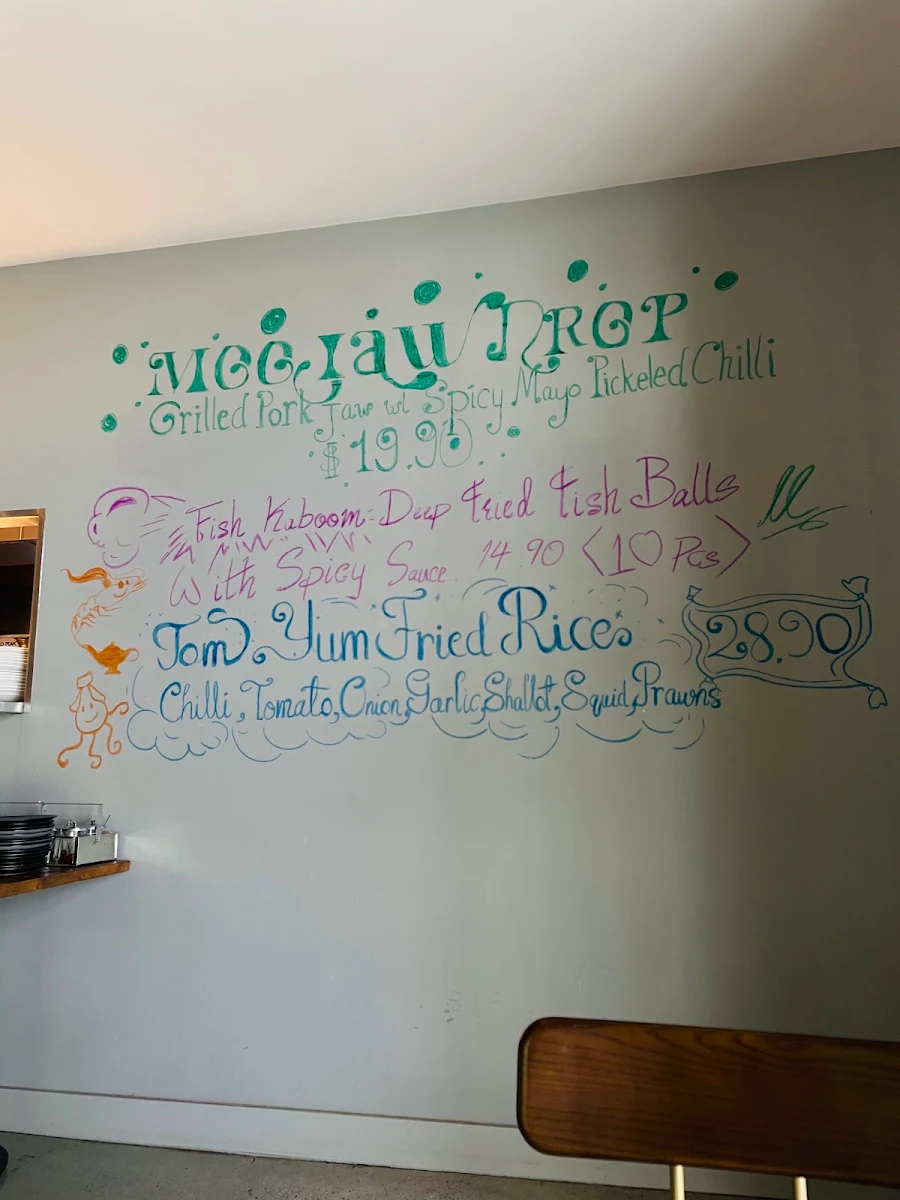 Moo Jaw Drop
Grilled Pork Jaw w/ Spicy Mayo Pickeled Chilli
$19.90
Fish Kaboom: Deep Fried Fish Balls
With Spicy Sauce. 14.90 <10 Pcs>
Tom Yum Fried Rice
28.90
Chilli, Tomato, Onion, Garlic, Shallot, Squid, Prawns